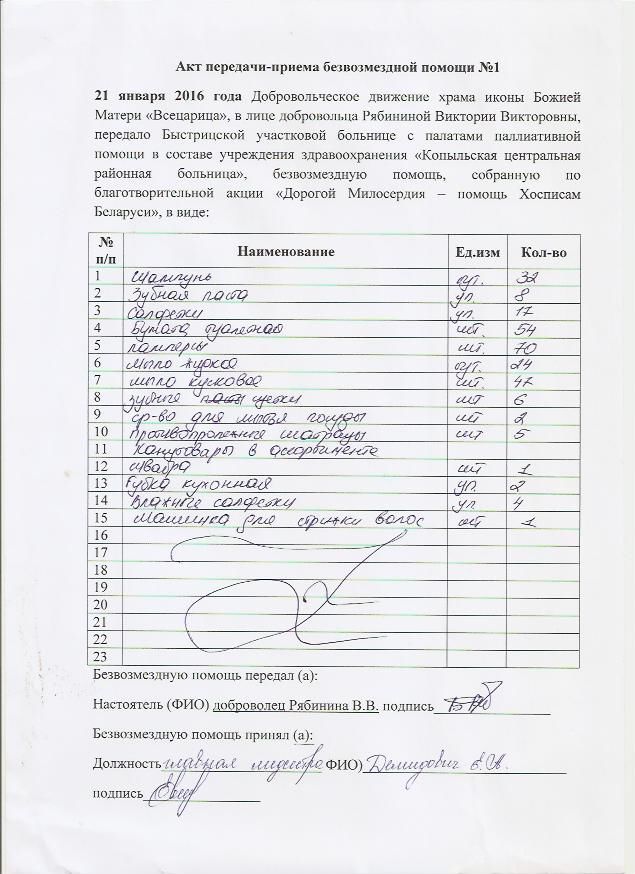 Акт передачи-приема безвозмездной помощи №1
21 января 2016 года Добровольческое движение храма иконы Божией
Матери «Всецарица», в лице добровольца Рябининой Виктории Викторовны,
передало Быстрицской участковой больнице с палатами паллиативной
помощи в составе учреждения здравоохранения «Копыльская центральная
районная больница», безвозмездную помощь, собранную по
благотворительной акции «Дорогой Милосердия – помощь Хосписам
Беларуси», в виде:
№ п/п Наименование Ед.изм Кол-во
1 Шампунь бут. 32
2 Зубная паста уп. 8
3 Салфетки уп. 17
4 Бумага туалетная шт. 54
5 памперсы шт. 70
6 Мыло жидкое бут. 24
7 мыло кусковое шт. 47
8 зубные пасты щетки шт 6
9 ср-во для мытья посуды шт 2
10 Противопролежные матрацы шт 5
11 Канцтовары в ассортименте
12 швабра шт 1
13 Губка кухонная уп. 2
14 Влажные салфетки уп 4
15 Машинка для стрижки волос шт 1
16
17
18
19
20
21
22
23
Безвозмездную помощь передал (а):
Настоятель (ФИО) доброволец Рябинина В.В. подпись
Безвозмездную помощь принял (а):
Должность главная медсестра ФИО) Демидович Е.А.
подпись